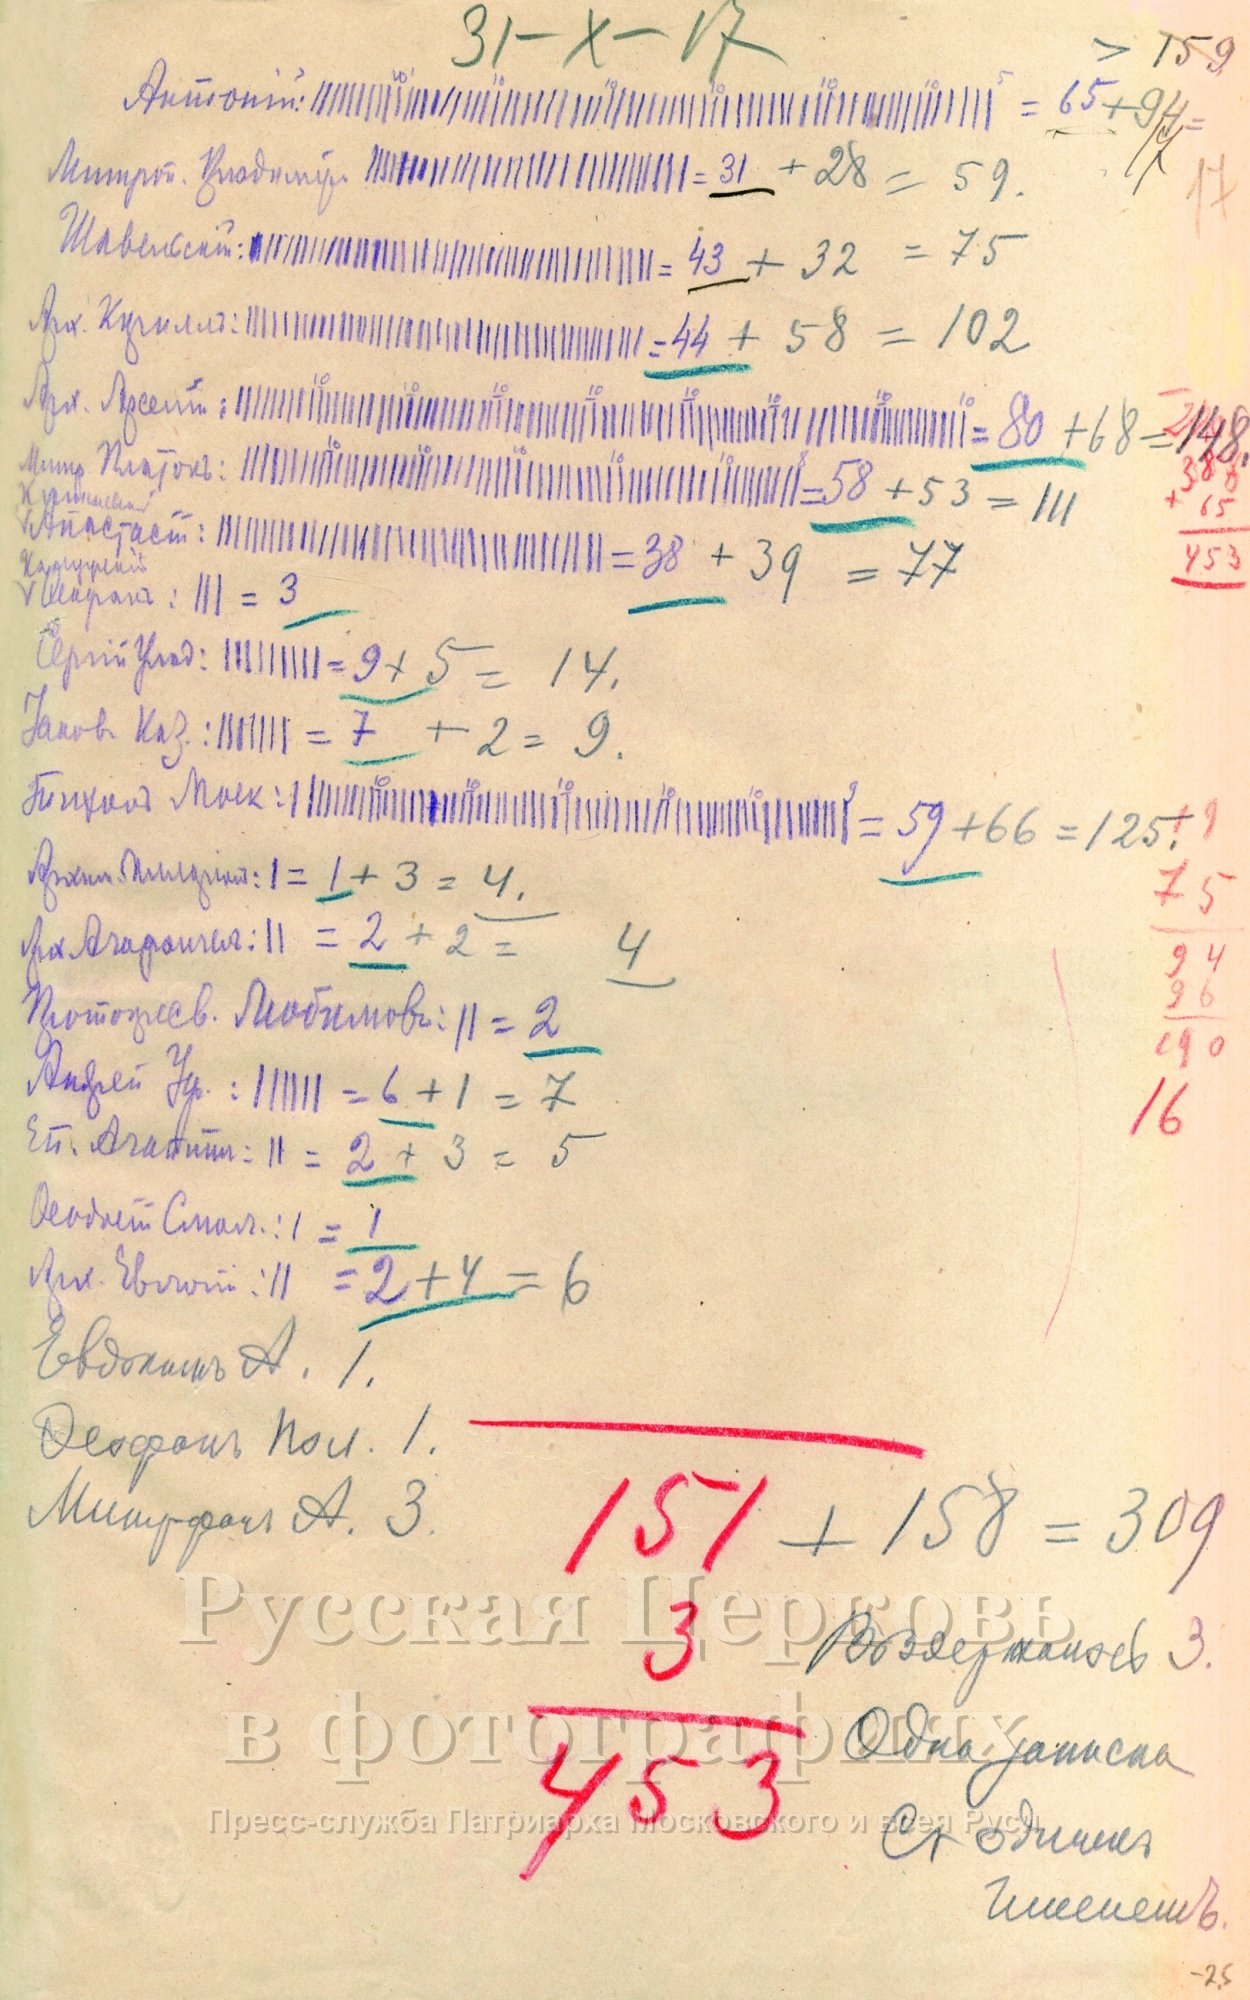 31-X-17
> 159
Антоній: = 65 + 94 =
Митроп. Владимір. = 31 + 28 = 59.
17
Шавельскій: = 43 + 32 = 75
Арх. Кириллъ: = 44 + 58 = 102
Арх. Арсеній: = 80 + 68 = 148.
Митр. Платонъ: = 58 + 53 = 111
388
+ 65
453
Кишиневскій
Анастасій: = 38 + 39 = 77
Калужскій
Ѳеофанъ: = 3
Сергій Влад: = 9 + 5 = 14.
Іаковъ Каз.: = 7 + 2 = 9.
Тихонъ Моск: = 59 + 66 = 125.
+ 9
75
94
96
190
16
= 1 + 3 = 4.
Арх Агафангелъ: = 2 + 2 = 4
Протопресв. Любимовъ: = 2
Андрей Ух.: = 6 + 1 = 7
Еп. Агапитъ: = 2 + 3 = 5
Ѳеодосій Смол.: = 1
Арх. Евлогій: = 2 + 4 = 6
Евдокимъ А. 1.
Ѳеофанъ Пол. 1.
Митрофанъ А. 3.
151 + 158 = 309
3
Воздержалось 3.
453
Одна записка
съ однимъ
именемъ.
-25
Русская Церковь
в фотографиях
Пресс-служба Патриарха Московского и всея Руси